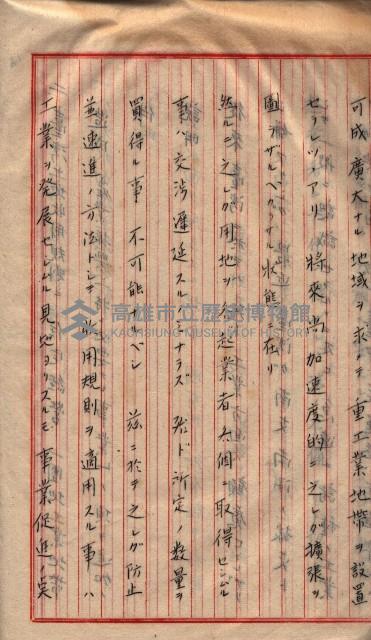 可成廣大ナル地域ヲ求メテ重工業地帶ヲ設置
セラレツヽアリ 將來尚加速度的ニ之レガ擴張ヲ
圖ラザルベカラザル狀態ニ在リ
然ルニ之レガ用地ヲ各起業者夫個ニ取得セシムル
事ハ交涉遲延スルノミナラズ 殆ド所定ノ數量ヲ
買得ル事 不可能ナルベシ 茲ニ於テ之レガ防止
並速進ノ方法トシテ 用規則ヲ適用スル事ハ
工業ヲ發展セシムル見地ヨリスルモ 事業促進ノ実
高雄市立歷史博物館
KAOHSIUNG MUSEUM OF HISTORY